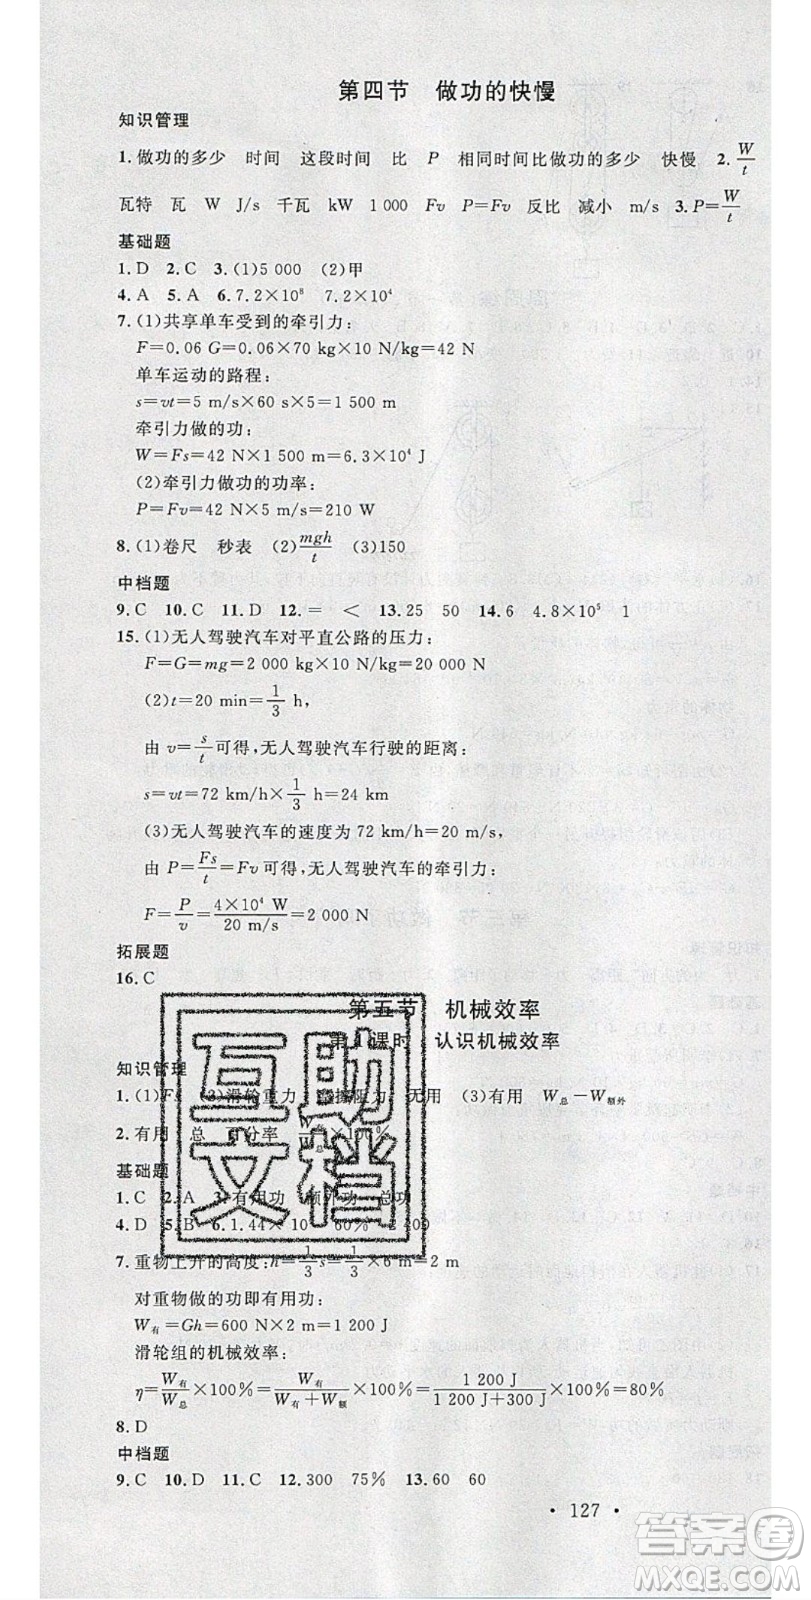 第四节　做功的快慢
知识管理
1.做功的多少　时间　这段时间　比　P　相同时间比做功的多少　快慢　2.W/t
瓦特　瓦　W　J/s　千瓦　kW　1 000　Fv　P=Fv　反比　减小　m/s　3.P=W/t
基础题
1.D　2.C　3.(1)5 000　(2)甲
4.A　5.A　6.7.2×10⁸　7.2×10⁴
7.(1)共享单车受到的牵引力：
F=0.06 G=0.06×70 kg×10 N/kg=42 N
单车运动的路程：
s=vt=5 m/s×60 s×5=1 500 m
牵引力做的功：
W=Fs=42 N×1 500 m=6.3×10⁴ J
(2)牵引力做功的功率：
P=Fv=42 N×5 m/s=210 W
8.(1)卷尺　秒表　(2)mgh/t　(3)150
中档题
9.C　10.C　11.D　12.=　<　13.25　50　14.6　4.8×10⁵　1
15.(1)无人驾驶汽车对平直公路的压力：
F=G=mg=2 000 kg×10 N/kg=20 000 N
(2)t=20 min=1/3 h,
由 v=s/t 可得,无人驾驶汽车行驶的距离：
s=vt=72 km/h×1/3 h=24 km
(3)无人驾驶汽车的速度为 72 km/h=20 m/s,
由 P=Fs/t=Fv 可得,无人驾驶汽车的牵引力：
F=P/v=4×10⁴ W/20 m/s=2 000 N
拓展题
16.C
第五节　机械效率
第1课时　认识机械效率
知识管理
1.(1)Fs　(2)滑轮重力　摩擦阻力　无用　(3)有用　W总－W额外
2.有用　总　百分率　×100%
基础题
1.C　2.A　3.有用功　额外功　总功
4.D　5.B　6.1.44×10　60%　2 400
7.重物上升的高度：h=1/3 s=1/3×6 m=2 m
对重物做的功即有用功：
W有=Gh=600 N×2 m=1 200 J
滑轮组的机械效率：
η=W有/W总×100%=W有/W有+W额×100%=1 200 J/1 200 J+300 J×100%=80%
8.D
中档题
9.C　10.D　11.C　12.300　75%　13.60　60
• 127 •
互助文档
答案圈
MXQE.COM